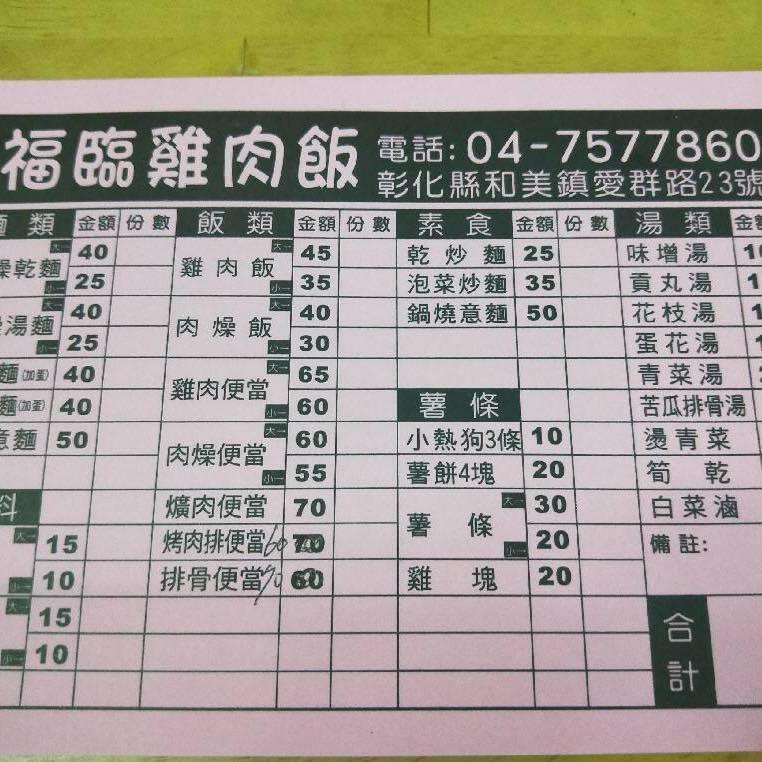 福臨雞肉飯
電話: 04-7577860
彰化縣和美鎮愛群路23號
類 金額 份數 飯類 金額 份數 素食 金額 份數 湯類
燥乾麵 大 40 小 25
湯麵 大 40 小 25
麵(加蛋) 40
麵(加蛋) 40
意麵 50
料
大 15
小 10
大 15
小 10
雞肉飯 大 45 小 35
肉燥飯 大 40 小 30
雞肉便當 大 65 小 60
肉燥便當 大 60 小 55
爌肉便當 70
烤肉排便當 60 70
排骨便當 70 60
乾炒麵 25
泡菜炒麵 35
鍋燒意麵 50
薯條
小熱狗3條 10
薯餅4塊 20
薯條 大 30 小 20
雞塊 20
味增湯
貢丸湯
花枝湯
蛋花湯
青菜湯
苦瓜排骨湯
燙青菜
筍乾
白菜滷
備註:
合計